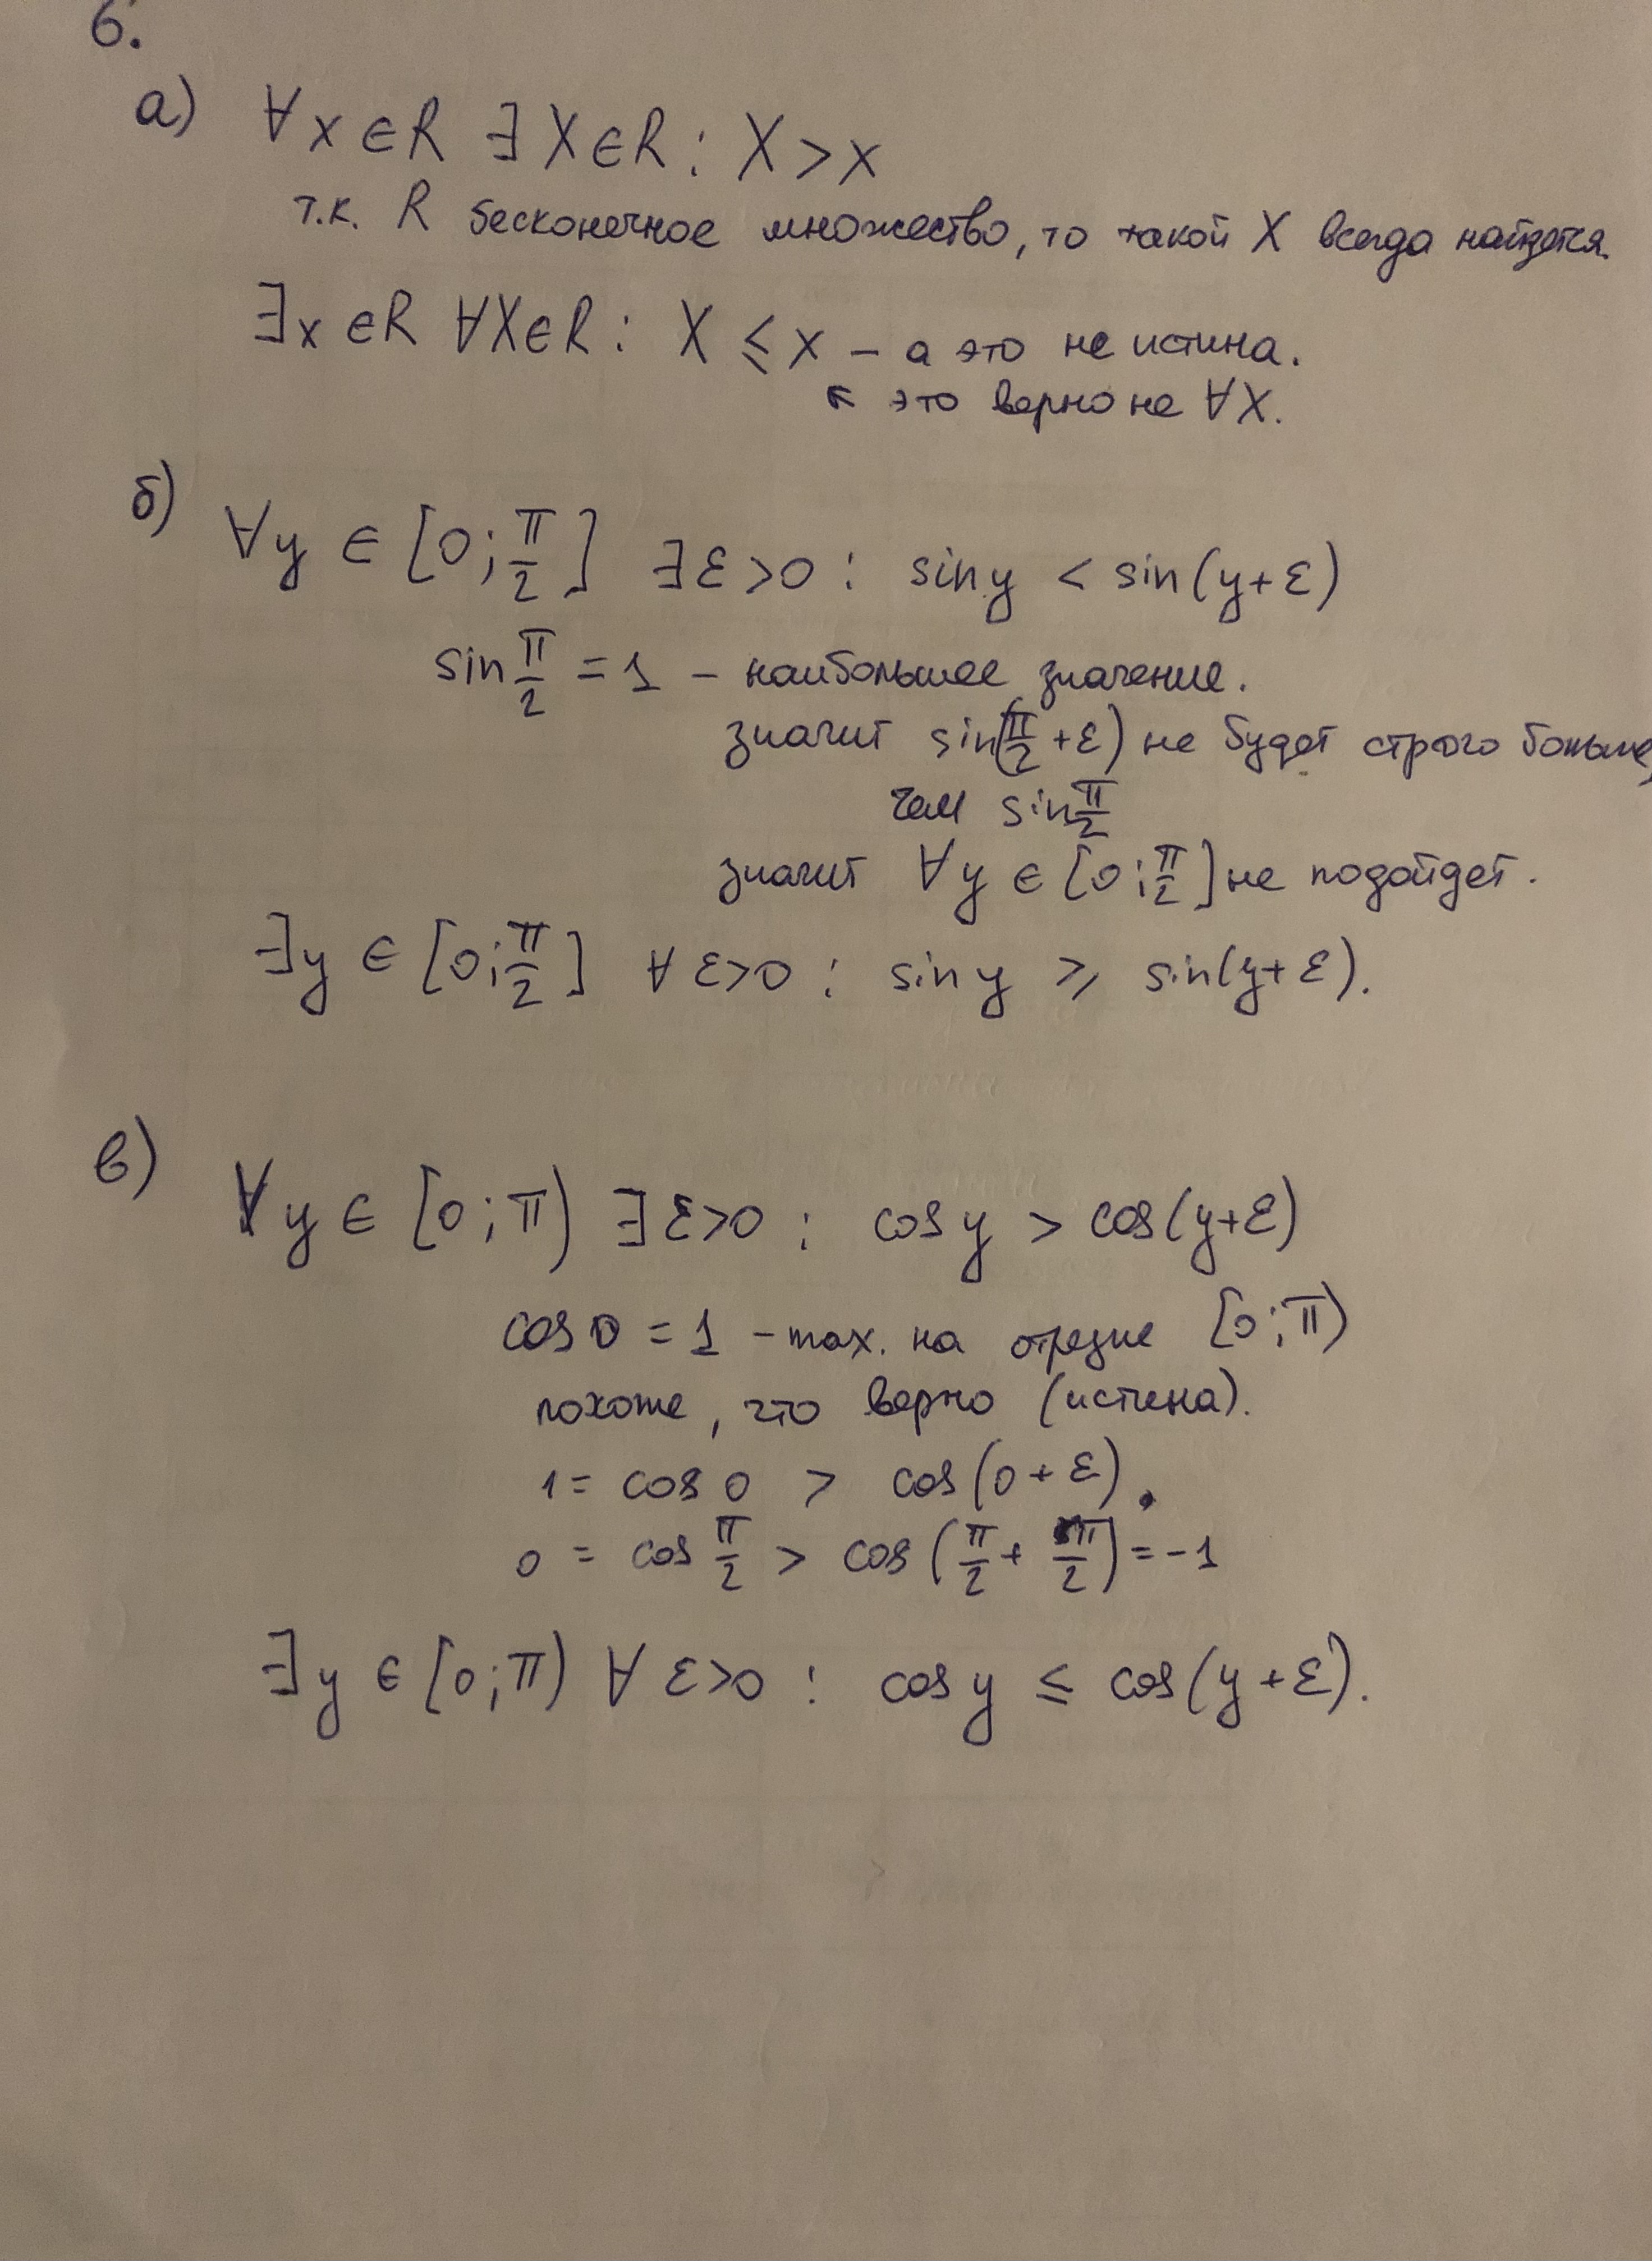 6.
а) ∀x∈R ∃X∈R: X>x
т.к. R бесконечное множество, то такой X всегда найдется.
∃x∈R ∀X∈R: X ⩽ x – а это не истина.
↖ это верно не ∀X.
б) ∀y ∈ [0; π/2] ∃ε>0: sin y < sin(y+ε)
sin π/2 = 1 – наибольшее значение.
значит sin(π/2 + ε) не будет строго больше,
чем sin π/2
значит ∀y ∈ [0; π/2] не подойдет.
∃y ∈ [0; π/2] ∀ε>0: sin y ⩾ sin(y+ε).
в) ∀y ∈ [0; π) ∃ε>0: cos y > cos(y+ε)
cos 0 = 1 – max. на отрезке [0; π)
похоже, что верно (истина).
1 = cos 0 > cos(0+ε).
0 = cos π/2 > cos(π/2 + π/2) = -1
∃y ∈ [0; π) ∀ε>0: cos y ≤ cos(y+ε).